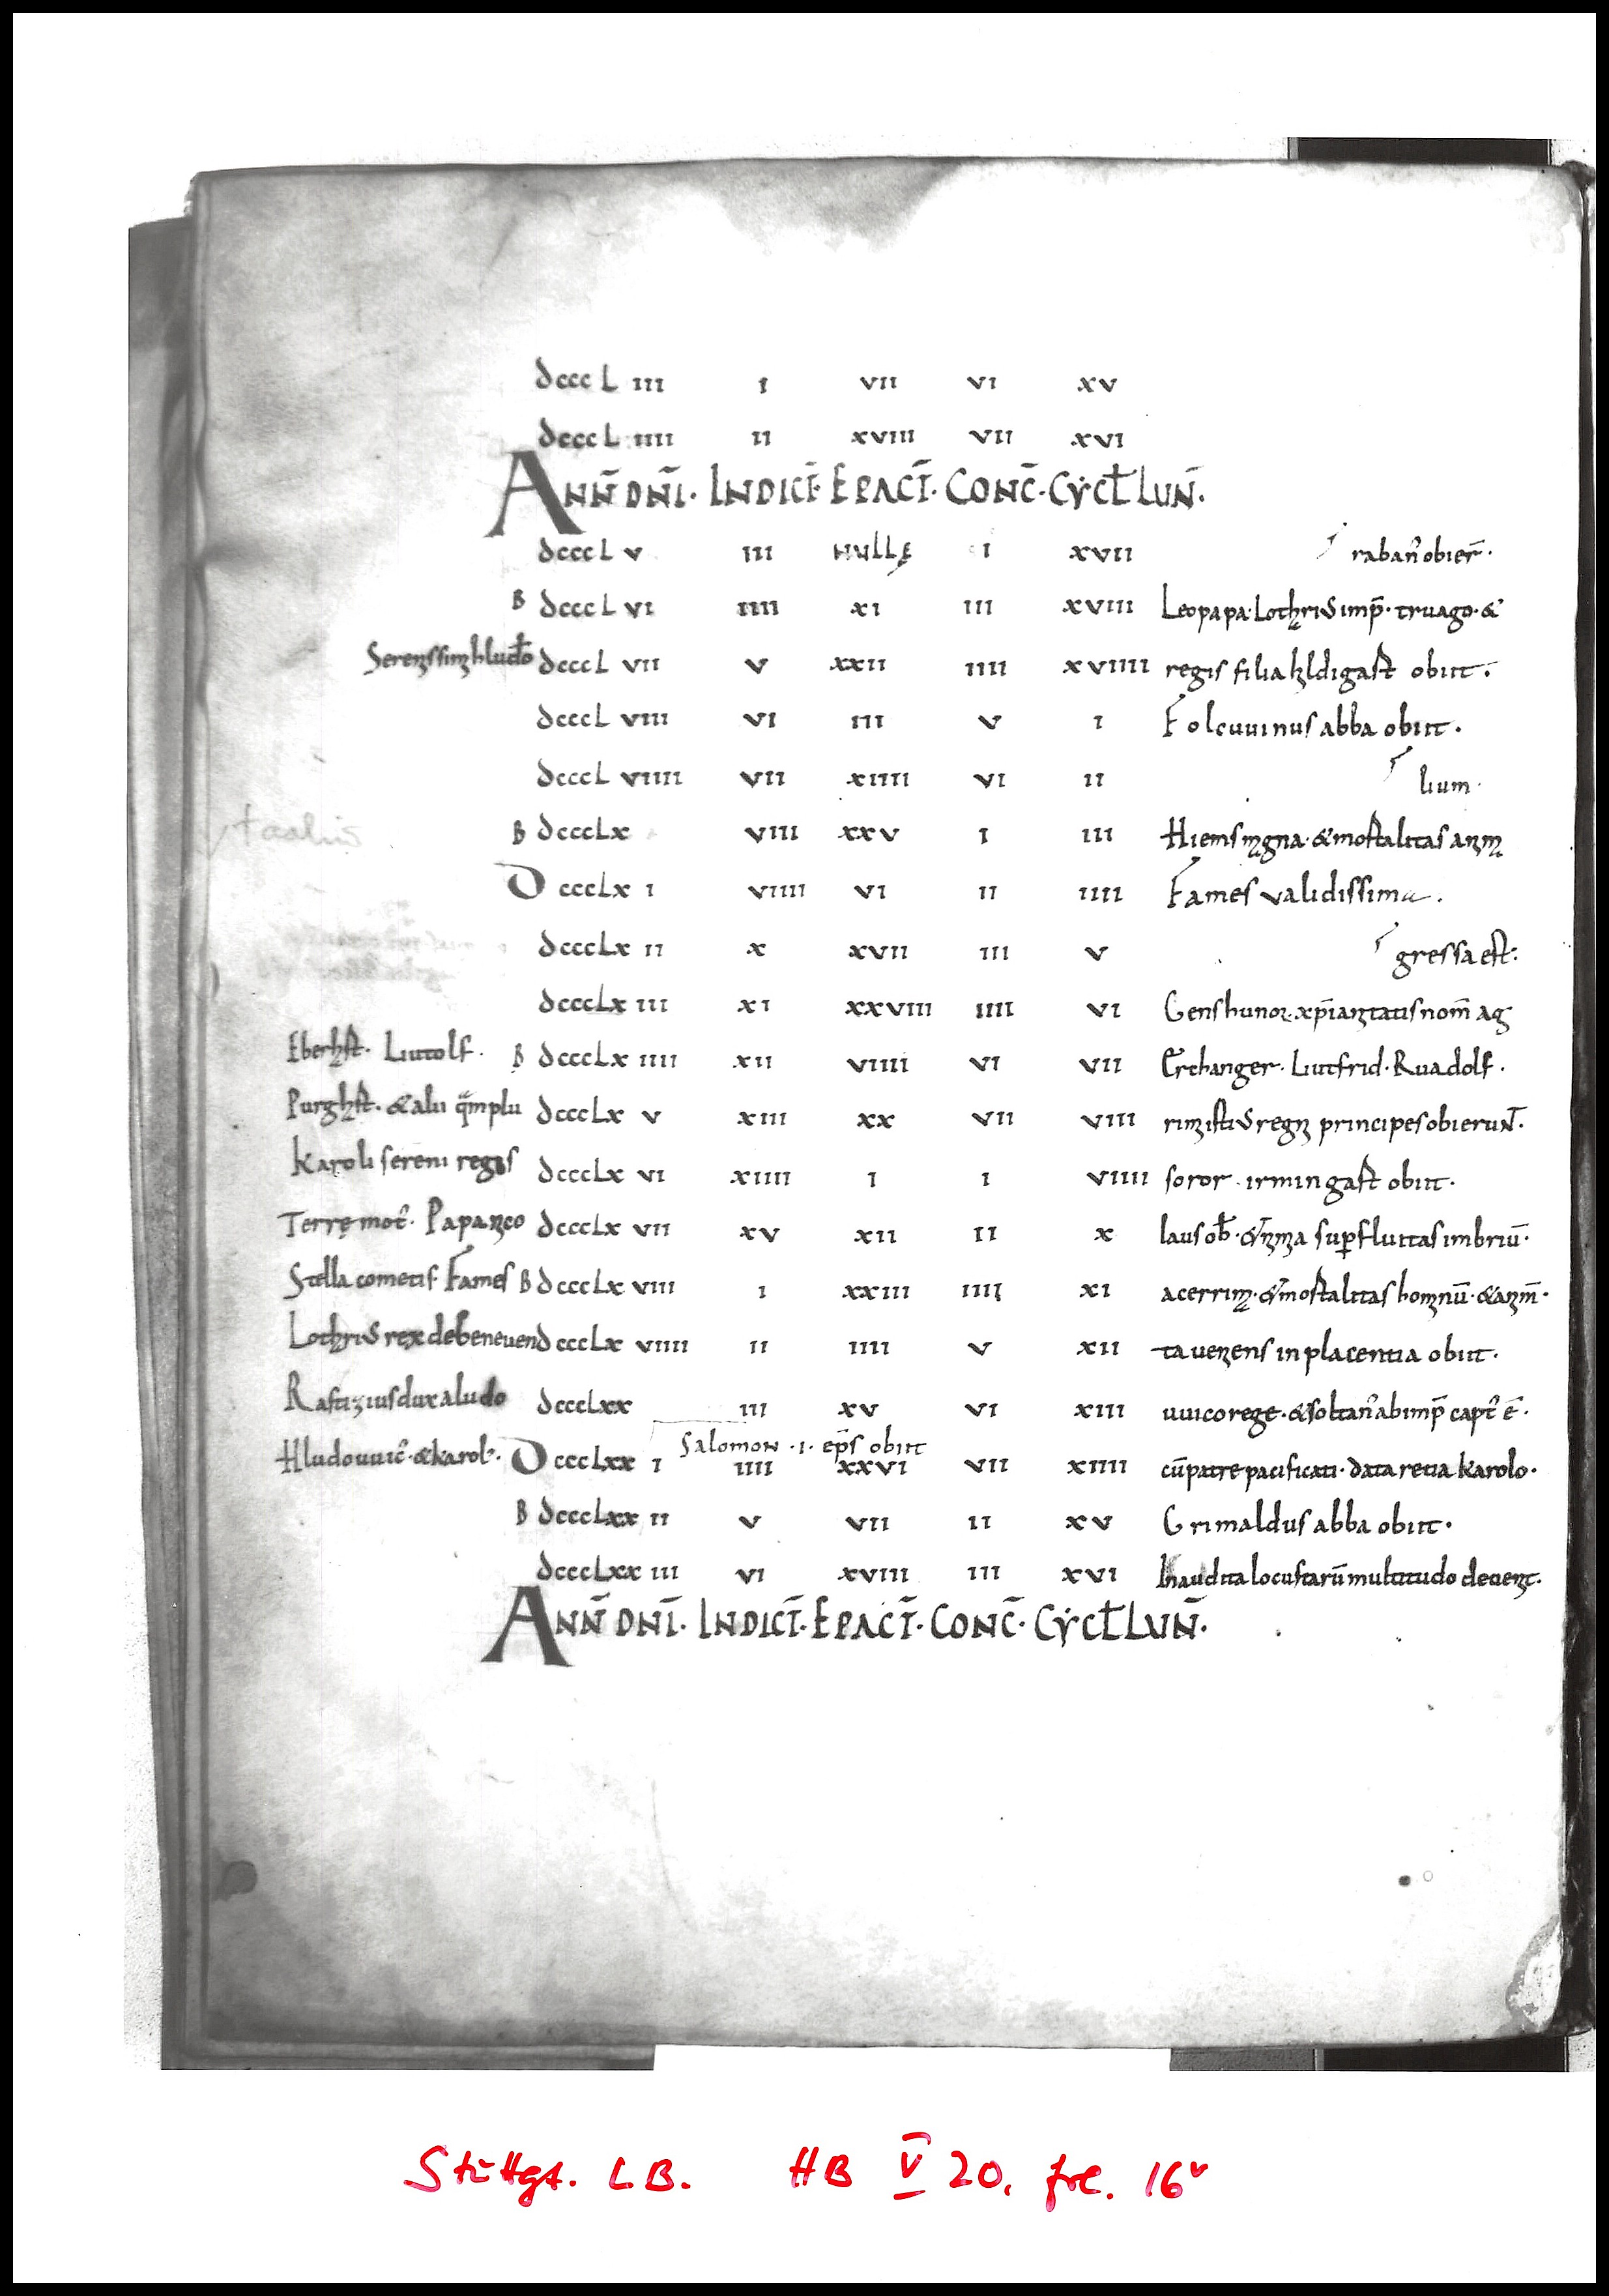 dccc L iii i vii vi xv
dccc L iiii ii xviii vii xvi
ANN̄ DN̄I · INDICT̄ · EPACT̄ · CONC̄ · CYCŁ LUN̄ ·
dccc L v iii NULLĘ i xvii raban᷒ obier̄ ·
B dccc L vi iiii xi iii xviii Leo papa · imp̄ · truago · &
dccc L vii v xxii iiii xviiii regis filia obiit .
dccc L viii vi iii v i Folcuuinus abba obiit .
dccc L viiii vii xiiii vi ii lium ·
B dcccLx viii xxv i iii Hiems · & mortalitas
DcccLx i viiii vi ii iiii Fames validissima .
dcccLx ii x xvii iii v gressa est :
dcccLx iii xi xxviii iiii vi Gens hunoꝝ nom̄ ag
Liutolf . B dcccLx iiii xii viiii vi vii Erchanger · Liutfrid · Ruadolf .
& alii dcccLx v xiii xx vii viii principes obierunt̄ .
Karoli sereni regis dcccLx vi xiiii i i viiii soror · irmingart obiit .
Terrę mot᷒ · dcccLx vii xv xii ii x laus ob̄ · sup̱fluitas imbriū ·
Stella cometis Fames B dcccLx viii i xxiii iiii xi mortalitas
rex de beneuen dcccLx viiii ii iiii v xii ta in placentia obiit .
dux aludo dcccLxx iii xv vi xiii uuico rege · & soltan᷒ ab imp̄ capt᷒ ē ·
Salomon · i · ep̄s obiit
Hludouuic᷒ · & karol᷒ · DcccLxx i iiii xxvi vii xiiii cū patre pacificati · data retia karolo ·
B dcccLxx ii v vii ii xv Grimaldus abba obiit .
dcccLxx iii vi xviii iii xvi Inaudita locustarū multitudo
ANN̄ DN̄I · INDICT̄ · EPACT̄ · CONC̄ · CYCŁ LUN̄ ·
Stuttgt. LB. HB V 20, fol. 16v